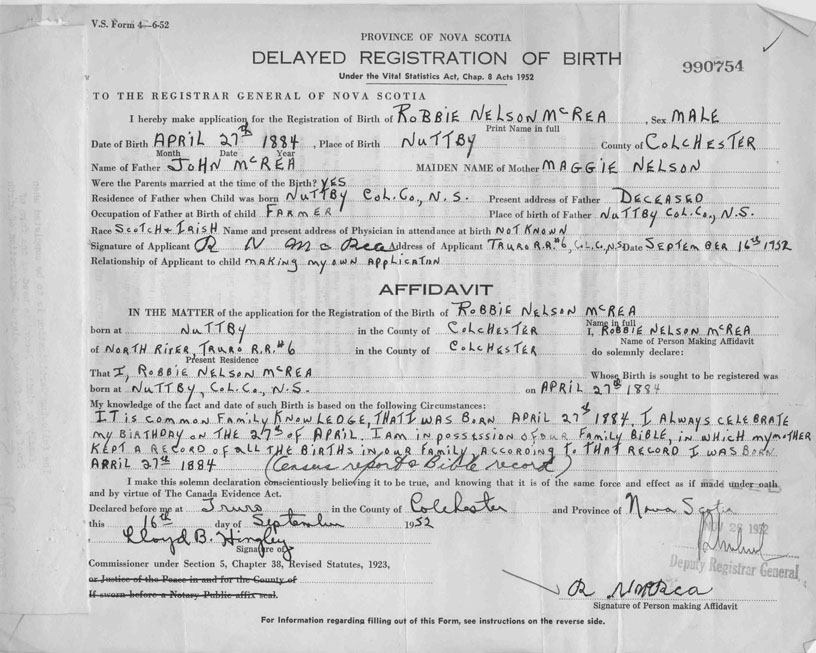 V.S. Form 4—6-52
PROVINCE OF NOVA SCOTIA
DELAYED REGISTRATION OF BIRTH
990754
Under the Vital Statistics Act, Chap. 8 Acts 1952
TO THE REGISTRAR GENERAL OF NOVA SCOTIA
I hereby make application for the Registration of Birth of ROBBIE NELSON McREA, Sex MALE
Print Name in full
Date of Birth APRIL 27th 1884, Place of Birth NUTTBY County of COLCHESTER
Month Date Year
Name of Father JOHN McREA MAIDEN NAME of Mother MAGGIE NELSON
Were the Parents married at the time of the Birth? YES
Residence of Father when Child was born NUTTBY COL. CO., N.S. Present address of Father DECEASED
Occupation of Father at Birth of child FARMER Place of birth of Father NUTTBY COL. CO., N.S.
Race SCOTCH & IRISH Name and present address of Physician in attendance at birth NOT KNOWN
Signature of Applicant R N McRea Address of Applicant TRURO R.R.#6, COL. CO, N.S. Date SEPTEMBER 16th 1952
Relationship of Applicant to child MAKING MY OWN APPLICATION
AFFIDAVIT
IN THE MATTER of the application for the Registration of the Birth of ROBBIE NELSON McREA
Name in full
born at NUTTBY in the County of COLCHESTER I, ROBBIE NELSON McREA
Name of Person Making Affidavit
of NORTH RIVER, TRURO R.R.#6 in the County of COLCHESTER do solemnly declare:
Present Residence
That I, ROBBIE NELSON McREA Whose Birth is sought to be registered was
born at NUTTBY, COL. CO., N.S. on APRIL 27th 1884
My knowledge of the fact and date of such Birth is based on the following Circumstances:
IT IS COMMON FAMILY KNOWLEDGE, THAT I WAS BORN APRIL 27th 1884. I ALWAYS CELEBRATE
MY BIRTHDAY ON THE 27th OF APRIL. I AM IN POSSESSION OF OUR FAMILY BIBLE, IN WHICH MY MOTHER
KEPT A RECORD OF ALL THE BIRTHS IN OUR FAMILY, ACCORDING TO THAT RECORD I WAS BORN
APRIL 27th 1884 (Census report & Bible record)
I make this solemn declaration conscientiously believing it to be true, and knowing that it is of the same force and effect as if made under oath
and by virtue of The Canada Evidence Act.
Declared before me at Truro in the County of Colchester and Province of Nova Scotia
this 16th day of September 1952
26 1952
Lloyd B. Hingley
Signature of
Deputy Registrar General
Commissioner under Section 5, Chapter 38, Revised Statutes, 1923,
or Justice of the Peace in and for the County of
If sworn before a Notary Public affix seal.
R N McRea
Signature of Person making Affidavit
For Information regarding filling out of this Form, see instructions on the reverse side.